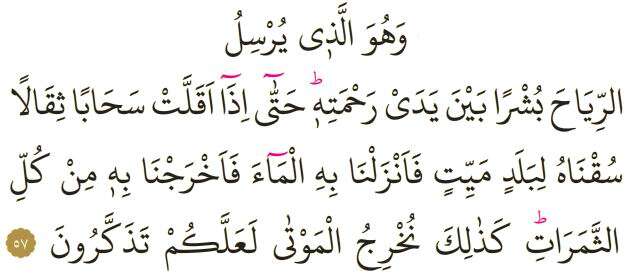 وَهُوَ الَّذ۪ي يُرْسِلُ
الرِّيَاحَ بُشْرًا بَيْنَ يَدَىْ رَحْمَتِه۪ۜ حَتّٰٓى اِذَٓا اَقَلَّتْ سَحَابًا ثِقَالًا
سُقْنَاهُ لِبَلَدٍ مَيِّتٍ فَاَنْزَلْنَا بِهِ الْمَٓاءَ فَاَخْرَجْنَا بِه۪ مِنْ كُلِّ
الثَّمَرَاتِۜ كَذٰلِكَ نُخْرِجُ الْمَوْتٰى لَعَلَّكُمْ تَذَكَّرُونَ ٥٧